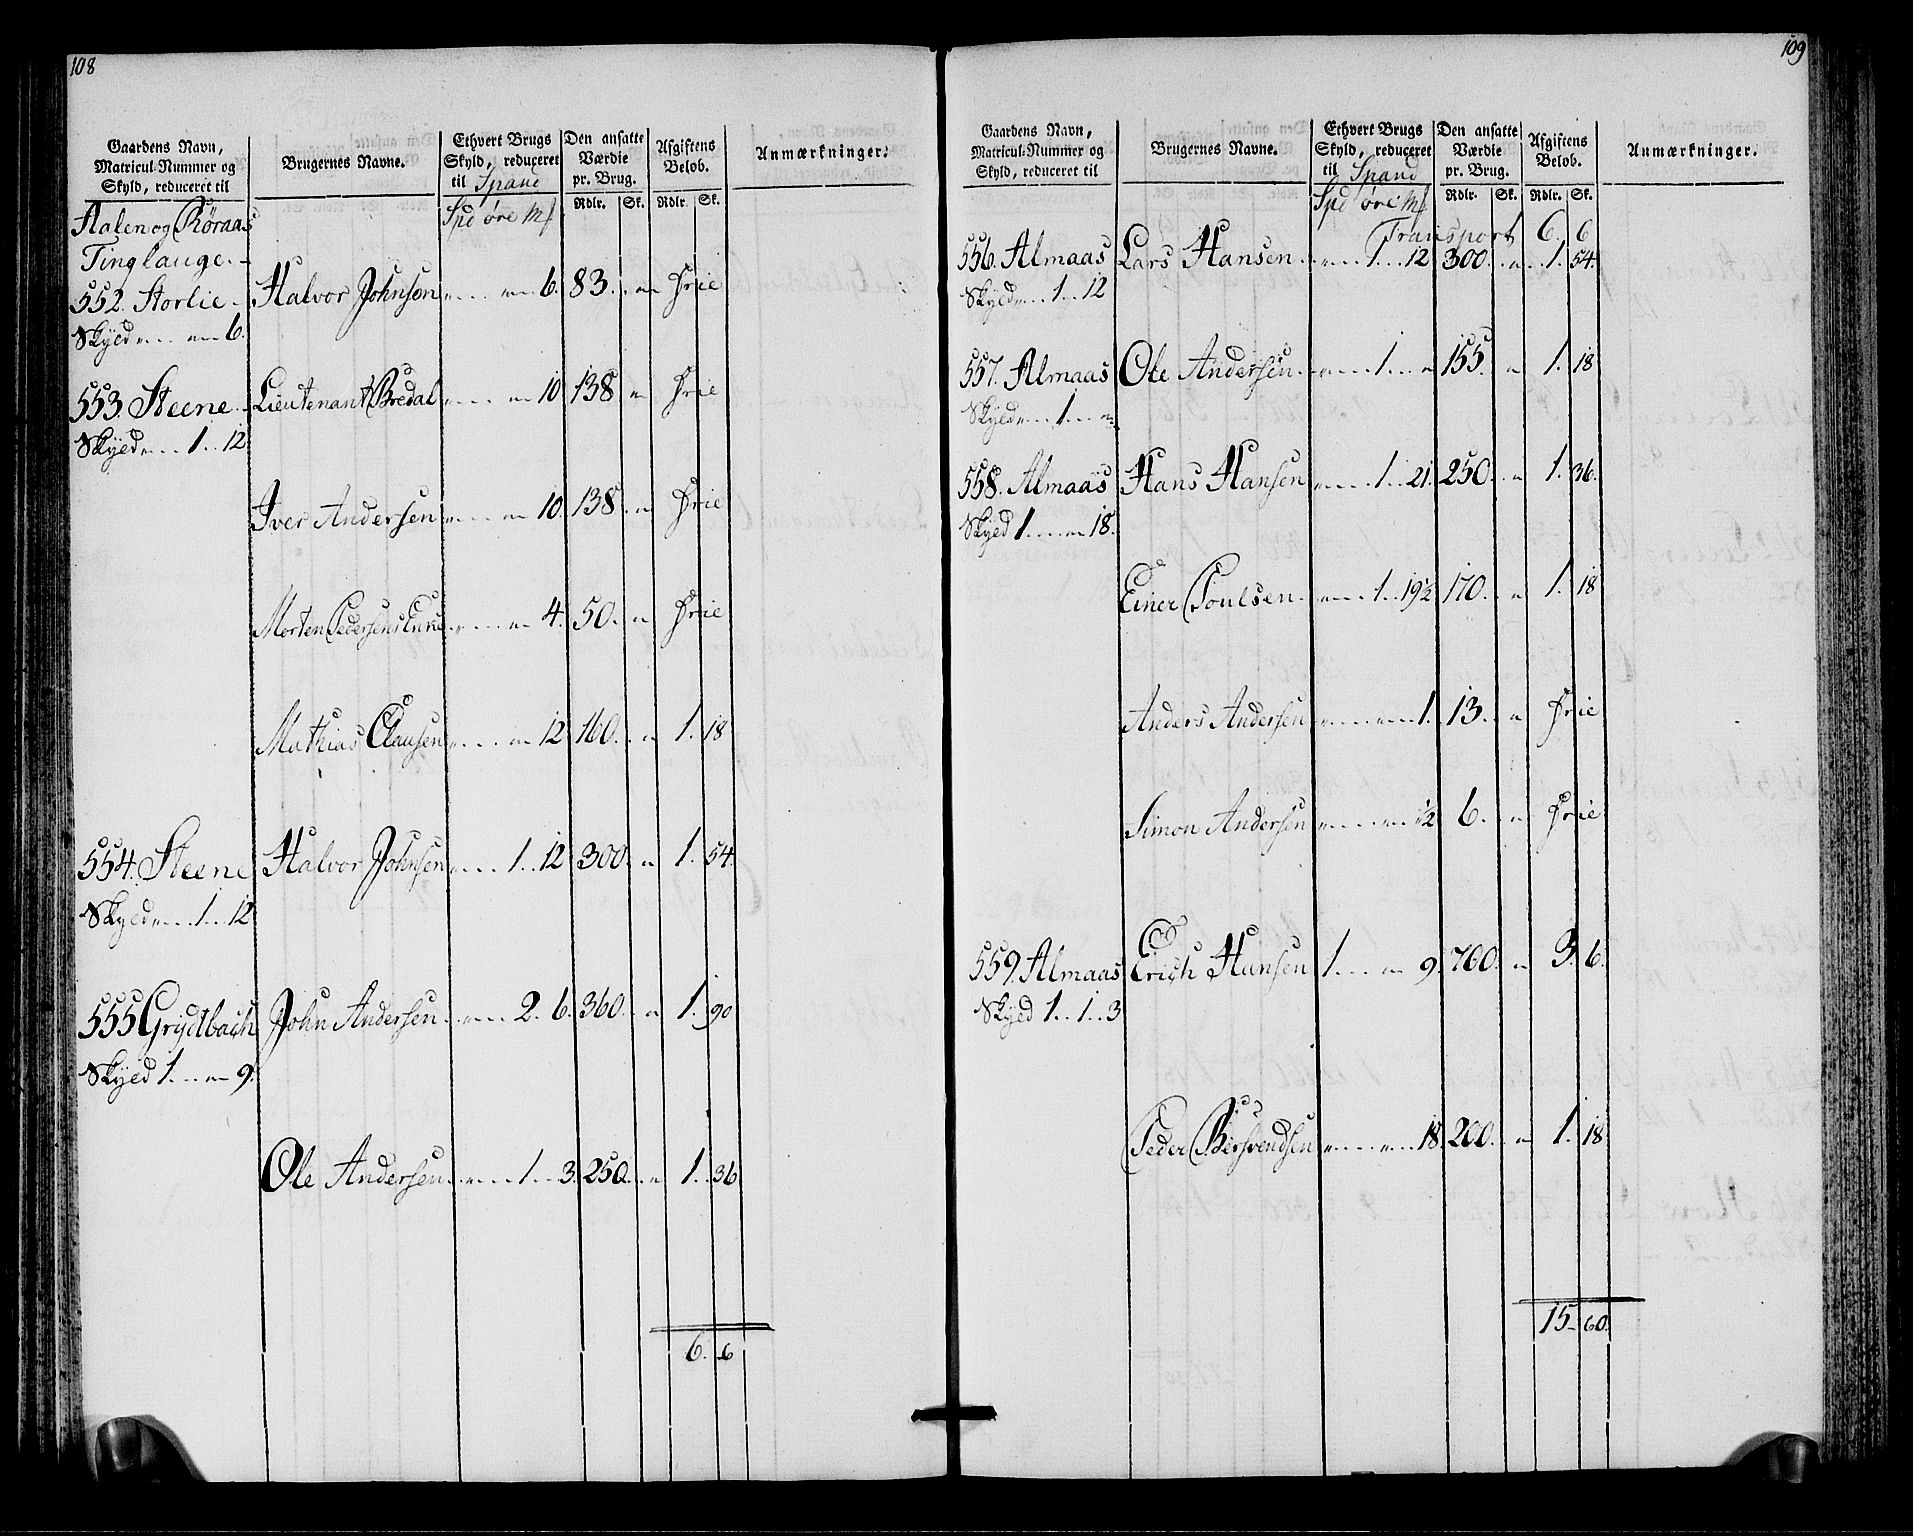 108
Gaardens Navn, Matricul-Nummer og Skyld, reduceret til | Brugernes Navne. | Ethvert Brugs Skyld, reduceret til Spand | Den ansatte Værdie pr. Brug. | Afgiftens Beløb. | Anmærkninger.
Spd øre Mf | Rdlr. Sk. | Rdlr. Sk.
Aalen og Röraas
Tinglauge.
552. Storlie. Halvor Johnson " " 6. 83. " Frie
Skyld " " 6.
553. Steene Lieutenant Bredal " " 10 138 " Frie
Skyld " 1 .. 12
Iver Andersen " " 10. 138. " Frie
Morten Pedersens Enke " " 4. 50. " Frie
Mathias Clausen " " 12 160. " 1. 18
554. Steene Halvor Johnsen " 1 .. 12 300. " 1. 54.
Skyld " 1 .. 12
555 Grydbach John Andersen " 2. 6. 360. " 1. 90
Skyld 1 .. " 9.
Ole Andersen " 1 .. 3. 250. " 1. 36
6. 6
109
Gaardens Navn, Matricul-Nummer og Skyld, reduceret til | Brugernes Navne. | Ethvert Brugs Skyld, reduceret til Spand | Den ansatte Værdie pr. Brug. | Afgiftens Beløb. | Anmærkninger.
Spd øre Mf | Rdlr. Sk. | Rdlr. Sk.
Transport 6. 6
556. Almaas Lars Hansen " 1 .. 12 300. " 1. 54.
Skyld " 1 .. 12
557. Almaas Ole Andersen " 1 .. " 155. " 1. 18
Skyld " 1 .. "
558. Almaas Hans Hansen " 1 .. 21. 250. " 1. 36.
Skyld 1 .. " 18.
Einer Poulsen " 1 .. 19½ 170. " 1. 18
Anders Andersen " " 1. 13. " Frie
Simon Andersen " " ½ 6. " Frie
559. Almaas Erich Hansen 1 .. " 9. 700. " 3. 6.
Skyld 1 .. 1 .. 3
Peder Bersvendsen " " 18. 200. " 1. 18
15 60.